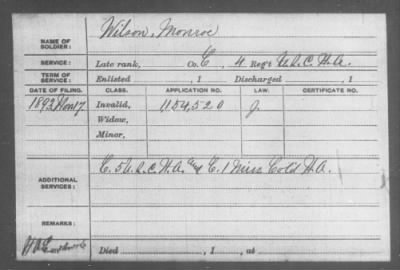 NAME OF SOLDIER: Wilson, Monroe
SERVICE: Late rank, Co. C, 4 Reg't U.S.C.H.A.
TERM OF SERVICE: Enlisted , 1 Discharged , 1
DATE OF FILING. CLASS. APPLICATION NO. LAW. CERTIFICATE NO.
1893 17 Invalid, 1,154,520 J.
Widow,
Minor,
ADDITIONAL SERVICES: C. 5 U.S.C.H.A. and C. 1 Miss Cold H.A.
REMARKS:
Died , 1 , at